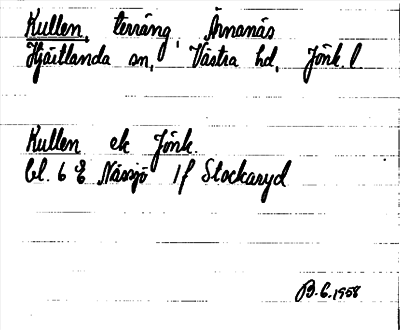 Kullen, terräng, Årnanäs
Hjärtlanda sn, Västra hd, Jönk. l
Kullen ek Jönk.
bl. 6 E Nässjö 1f Stockaryd
B.E. 1958